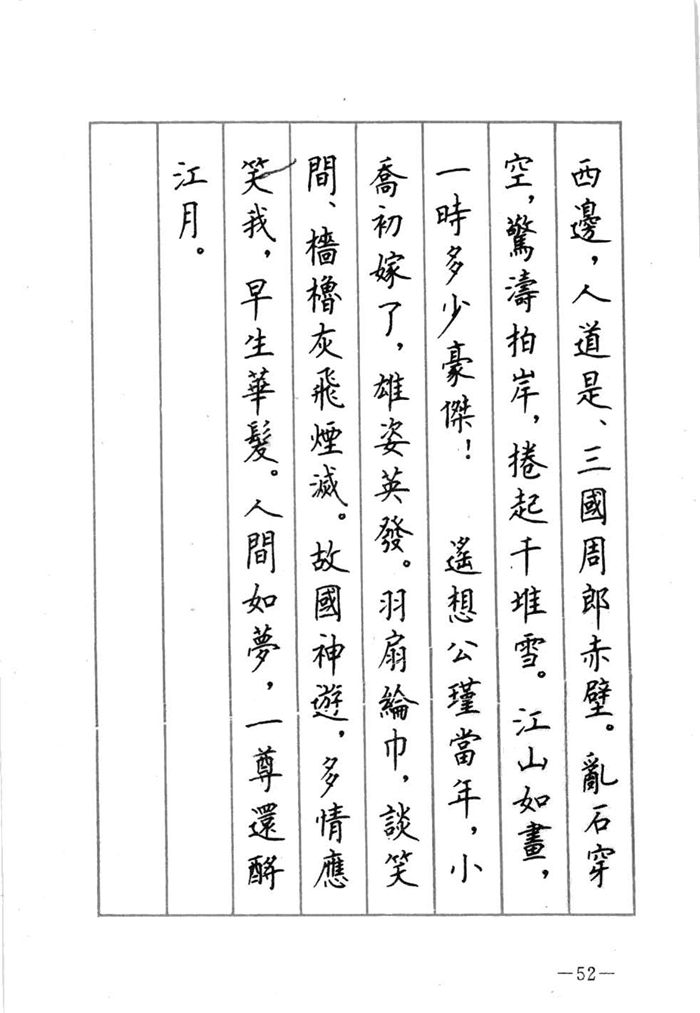 西邊，人道是、三國周郎赤壁。亂石穿
空，驚濤拍岸，捲起千堆雪。江山如畫，
一時多少豪傑！　遙想公瑾當年，小
喬初嫁了，雄姿英發。羽扇綸巾，談笑
間、檣櫓灰飛煙滅。故國神遊，多情應
笑我，早生華髮。人間如夢，一尊還酹
江月。
—52—